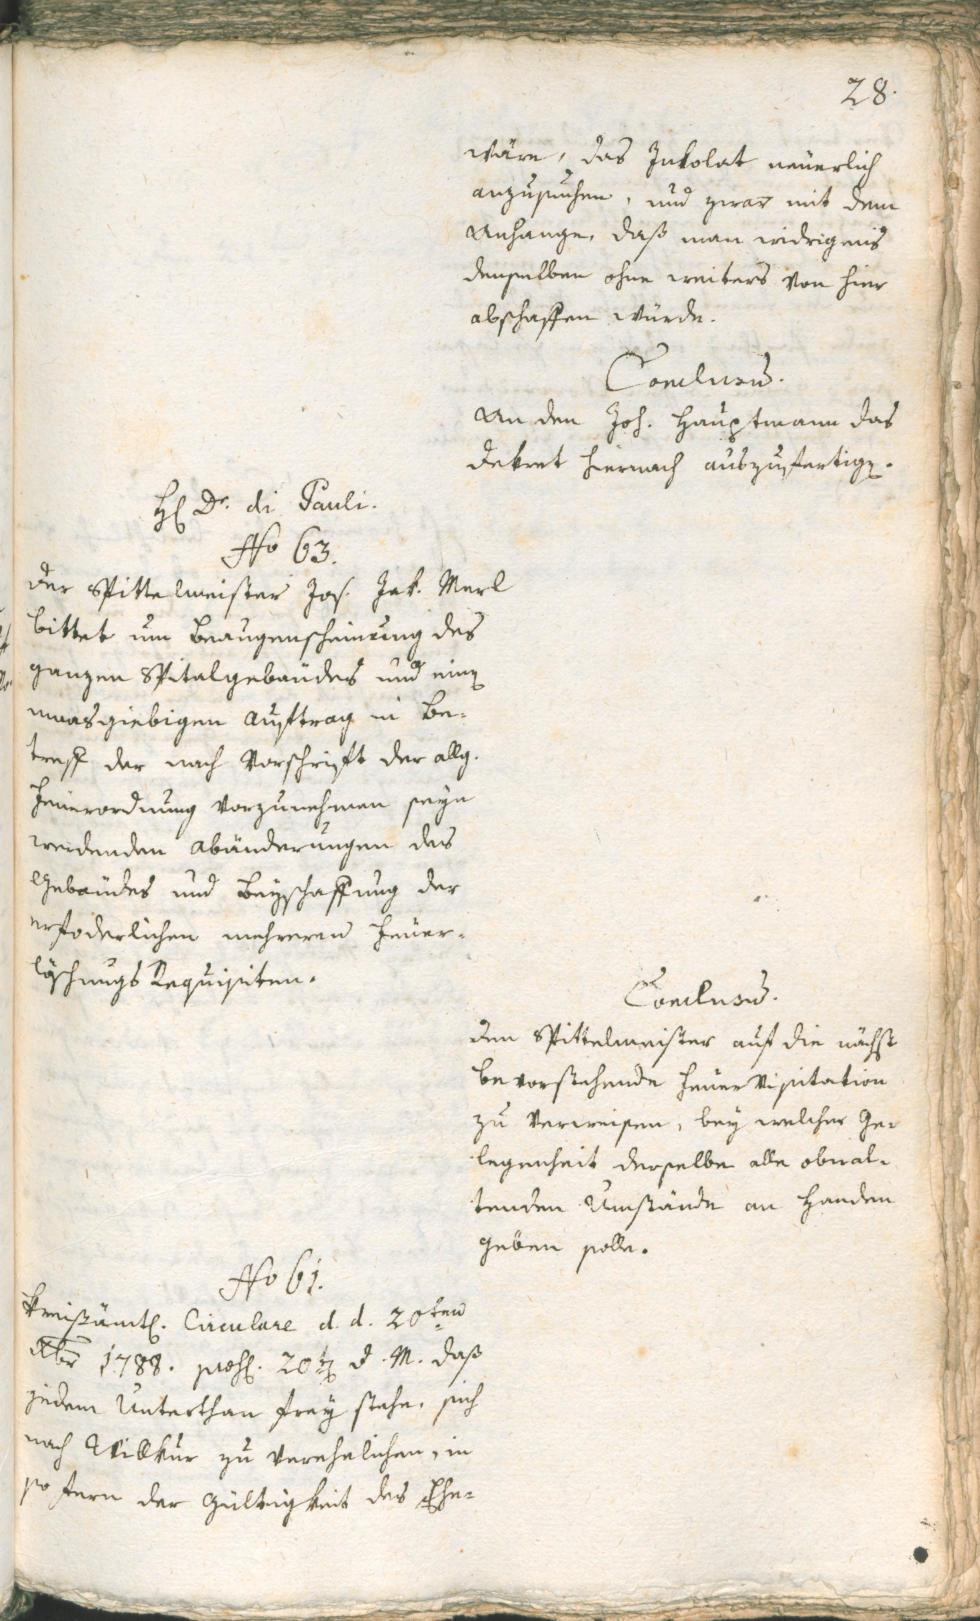 28.
wäre, das Inkolat neuerlich
anzusuchen, und zwar mit dem
Anhange, daß man widrigens
denselben ohne weiters von hier
abschaffen würde.
Conclusum.
An den Joh. Hauptmann das
Dekret hiernach auszufertigen.
H. Dr. di Pauli.
No 63.
Der Spittelmeister Jos. Jak. Merl
bittet um Beaugenscheinung des
ganzen Spitalgebäudes und einen
maasgiebigen Auftrag in Be-
treff der nach Vorschrift der allg.
Feuerordnung vorzunehmen seyn
werdenden Abänderungen des
Gebäudes und Beyschaffung der
erfoderlichen mehreren Feuer-
löschungs Requisiten.
Conclusum.
Den Spittelmeister auf die nächst
bevorstehende Feuer Visitation
zu verweisen, bey welcher Ge-
legenheit derselbe alle obwal-
tenden Umstände an Handen
geben solle.
No 61.
Kreisämtl. Circulare d. d. 20ten
Xbr 1788. d. M. daß
jedem Unterthan frey stehe, sich
nach Willkür zu verehelichen, in
so fern der Gültigkeit des Ehe-